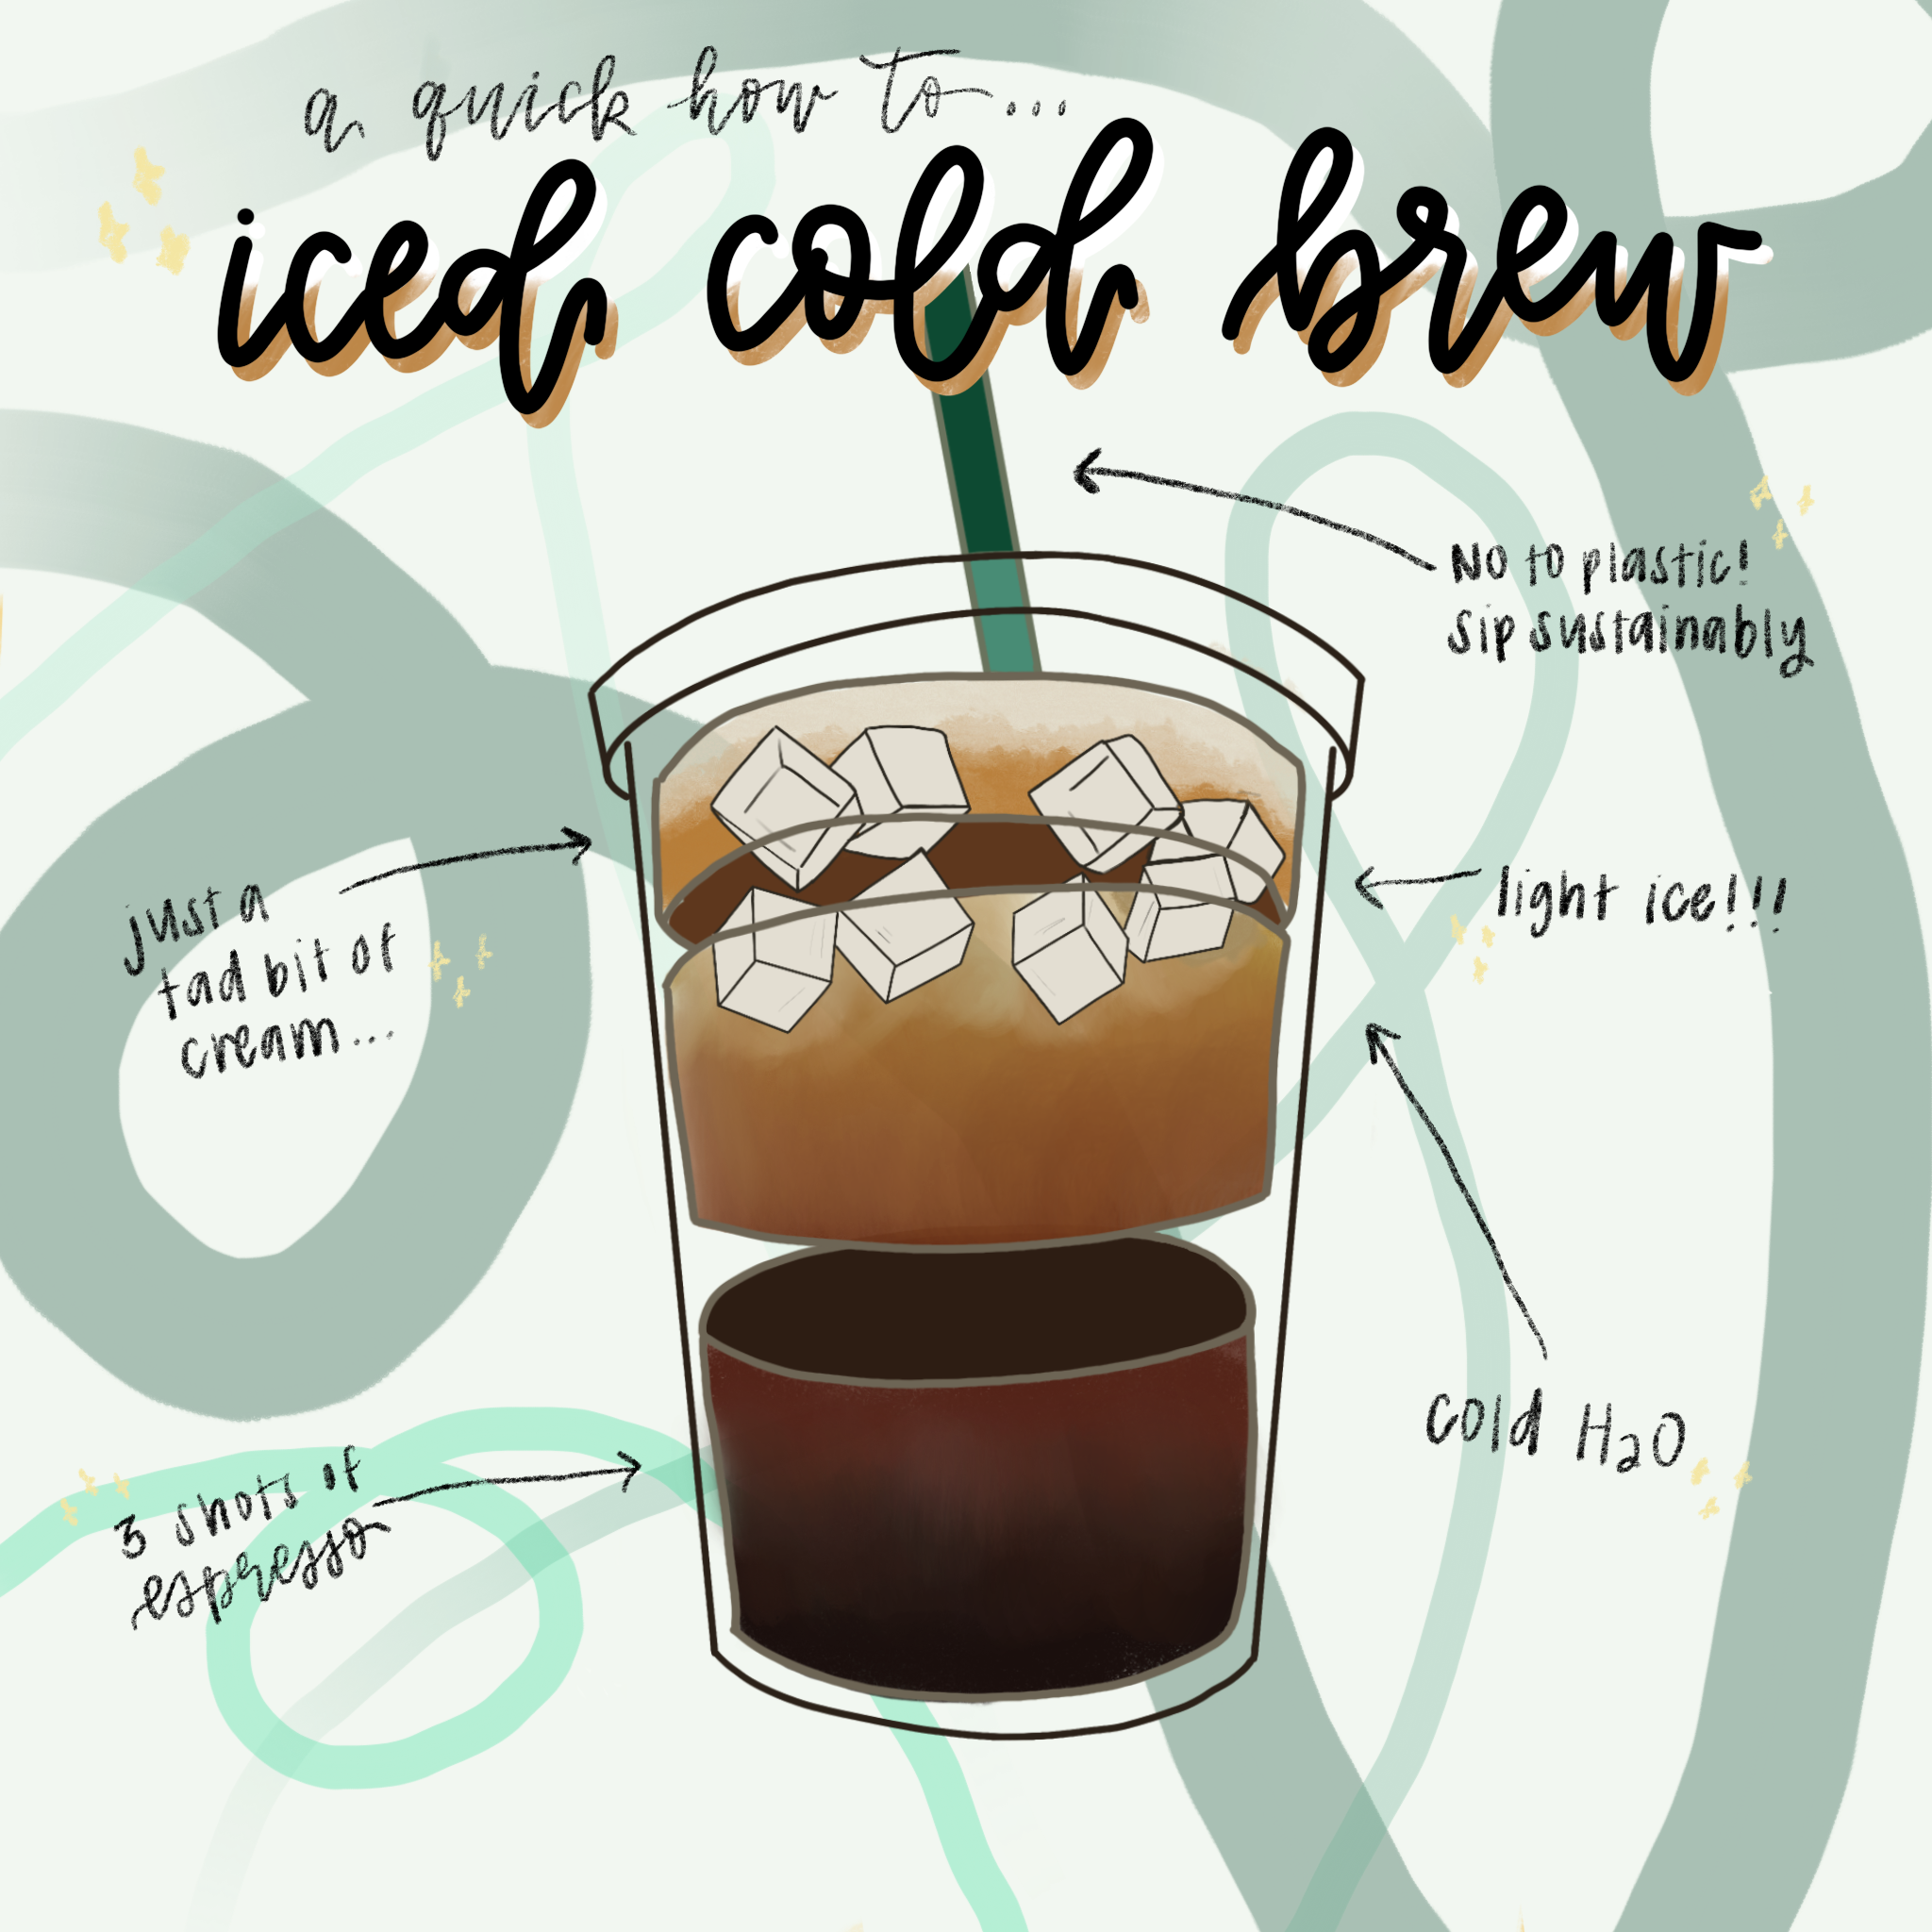 a quick how to...
iced cold brew
No to plastic!
sip sustainably
just a
tad bit of
cream...
light ice!!!
cold H2O
3 shots of
espresso